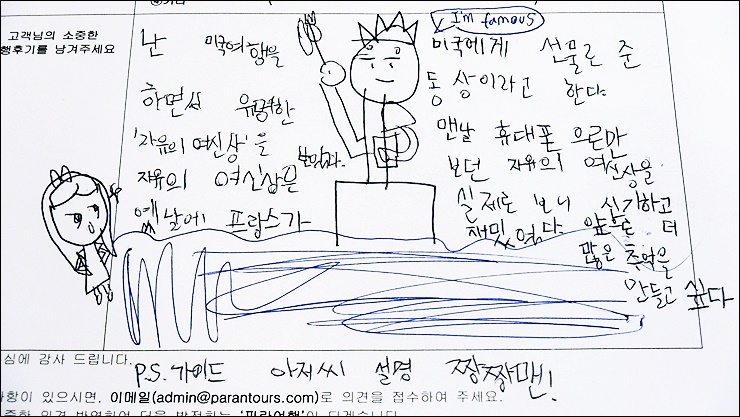 고객님의 소중한
행후기를 남겨주세요
난 미국여행을
하면서 유명한
'자유의 여신상'을
보았다.
자유의 여신상은
옛날에 프랑스가
I'm famous
미국에게 선물로 준
동상이라고 한다
맨날 휴대폰 으로만
보던 자유의 여신상을
실제로 보니 신기하고
재밌었다 앞으로 더
많은 추억을
만들고 싶다
심에 감사 드립니다.
P.S. 가이드 아저씨 설명 짱짱맨!
사항이 있으시면, 이메일(admin@parantours.com)로 의견을 접수하여 주세요.